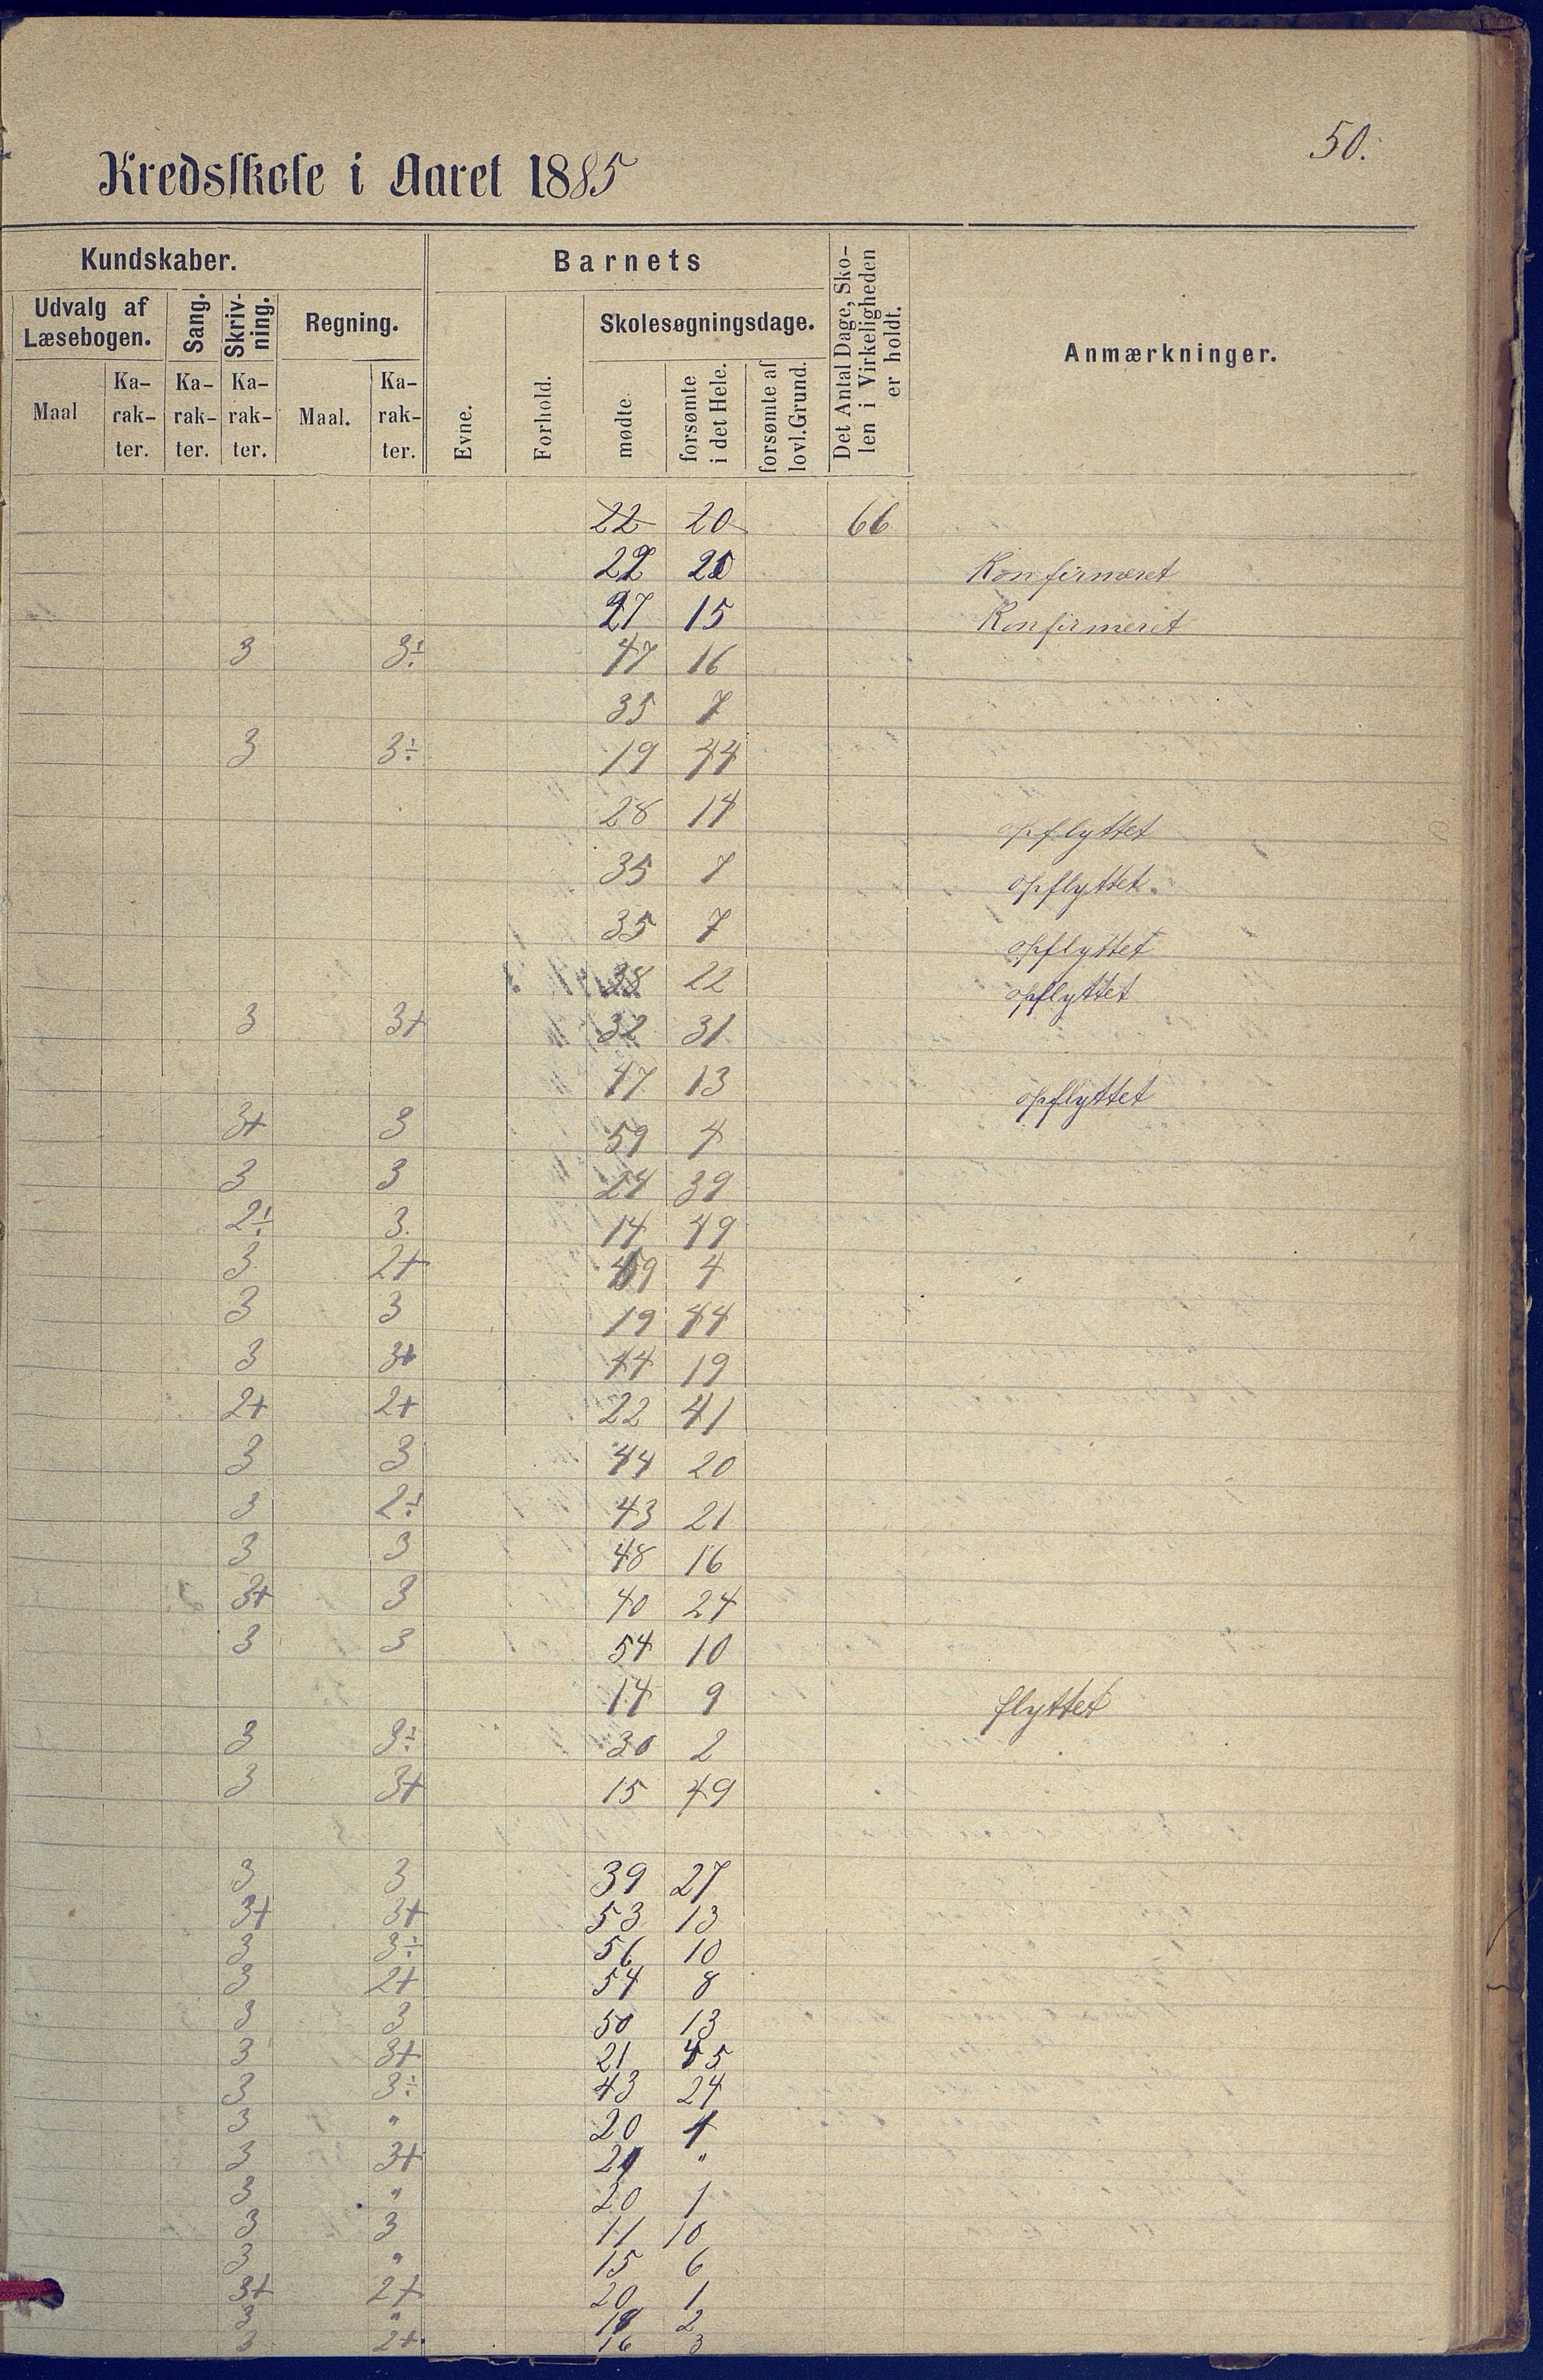 50.
Kredsskole i Aaret 1885
Kundskaber.
Barnets
Det Antal Dage, Sko-
len i Virkeligheden
er holdt.
Anmærkninger.
Udvalg af
Læsebogen.
Sang.
Skriv-
ning.
Regning.
Evne.
Forhold.
Skolesøgningsdage.
Maal
Ka-
rak-
ter.
Ka-
rak-
ter.
Ka-
rak-
ter.
Maal.
Ka-
rak-
ter.
mødte
forsømte
i det Hele.
forsømte af
lovl. Grund.
22 20 66
22 20 Konfirmeret
27 15 Konfirmeret
3 3÷ 47 16
35 7
3 3÷ 19 44
28 14 opflyttet
35 7 opflyttet.
35 7 opflyttet
38 22 opflyttet
3 3+ 32 31
47 13 opflyttet
3+ 3 59 4
3 3 24 39
2÷ 3. 14 49
3 2+ 59 4
3 3 19 44
3 3+ 44 19
2+ 2+ 22 41
3 3 44 20
3 2÷ 43 21
3 3 48 16
3+ 3 40 24
3 3 54 10
14 9 flyttet
3 3÷ 30 2
3 3+ 15 49
3 3 39 27
3+ 3+ 53 13
3 3÷ 56 10
3 2+ 54 8
3 3 50 13
3 3+ 21 45
3 3÷ 43 24
3 " 20 1
3 3+ 21 "
3 " 20 1
3 3 11 10
3 " 15 6
3+ 2+ 20 1
3 " 18 2
3 2+ 16 3